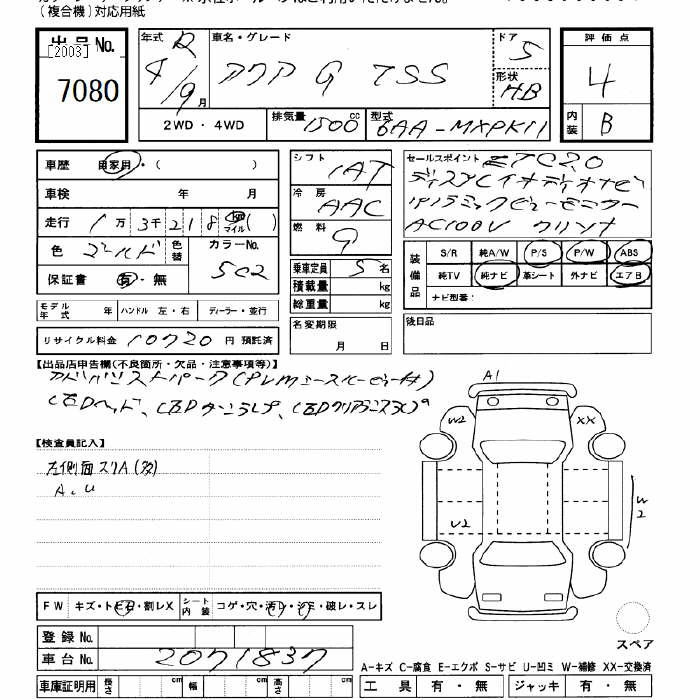 (複合機)対応用紙
出品No.
[2003]
7080
年式 R 4/9月
車名・グレード アクア G TSS
ドア 5
形状 HB
2WD・4WD
排気量 1500cc
型式 6AA-MXPK11
評価点
4
内装 B
車歴 自家用・( )
車検 年 月
走行 1万3千218 km マイル ( )
色 ゴールド 色替 カラーNo. 5C2
保証書 有・無
モデル年式 年 ハンドル 左・右 ディーラー・並行
リサイクル料金 10720円 預託済
シフト IAT
冷房 AAC
燃料 G
乗車定員 5名
積載量 kg
総重量 kg
名変期限
月 日
セールスポイント ETC2.0
ディスプレイオーディオナビ
パノラミックビューモニター
AC100V クリソナ
装備品 S/R 純A/W P/S P/W ABS
純TV 純ナビ 革シート 外ナビ エアB
ナビ型番:
後日品
【出品店申告欄(不良箇所・欠品・注意事項等)】
アドバンストパーク
LEDヘッド、LED
【検査員記入】
左側面スリA(多)
A、U
A1
W2 XX
U2
W2
FW キズ・トビ石・割レX シート内装 コゲ・穴・汚レ・シミ・破レ・スレ
登録No.
車台No. 2071837
スペア
A-キズ C-腐食 E-エクボ S-サビ U-凹ミ W-補修 XX-交換済
車庫証明用 長さ cm 幅 cm 高さ cm
工具 有・無 ジャッキ 有・無